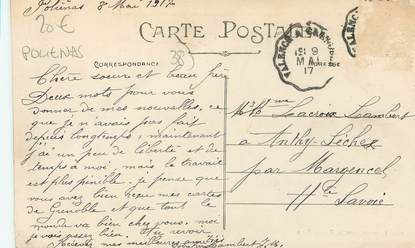 Poliénas 8 Mai 1917
20€
POLIENAS
38
CARTE POSTALE
CORRESPONDANCE
ADRESSE
VALENCE A
15 9
MAI
17
Chère soeur et beau frère
Deux mots pour vous
donner de mes nouvelles, ce
que je n'avais pas fait
depuis longtemps; maintenant
j'ai un peu de liberté et de
temps à moi, mais le travail
est plus pénible, je pense que
vous avez bien reçu mes cartes
de Grenoble et que tout le
monde va bien chez vous, moi
je vais assez bien. Au revoir
Recevez mes meilleures amitiés
Lambert
Mr Mme Lacroix Lambert
à Anthy-Séchex
par Margencel
Hte Savoie